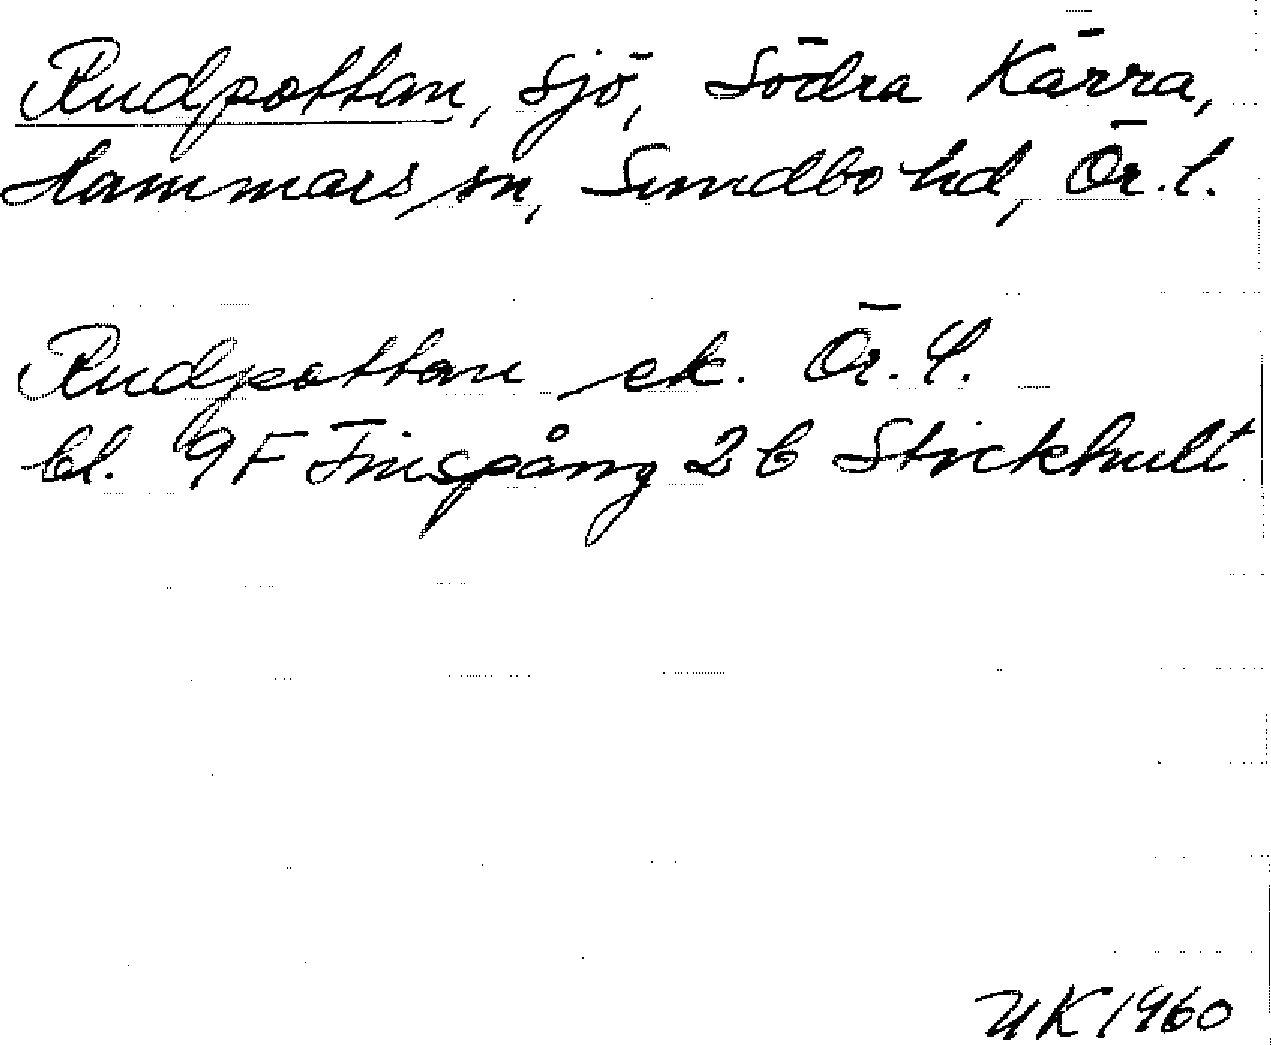 Rudpottan, sjö, Södra Kärra,
Hammars sn, Sundbo hd, Ör. l.
Rudpottan ek. Ör. l.
bl. 9F Finspång 2 b Stickhult
UK 1960